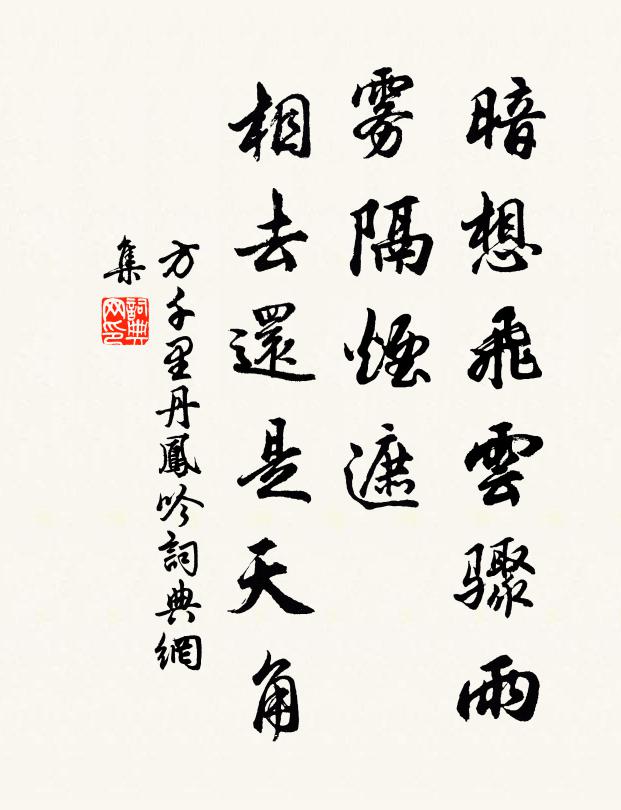 暗想飛雲驟雨
霧隔煙遮
相去還是天角
方千里丹鳳吟詞典網
集
詞典
网印